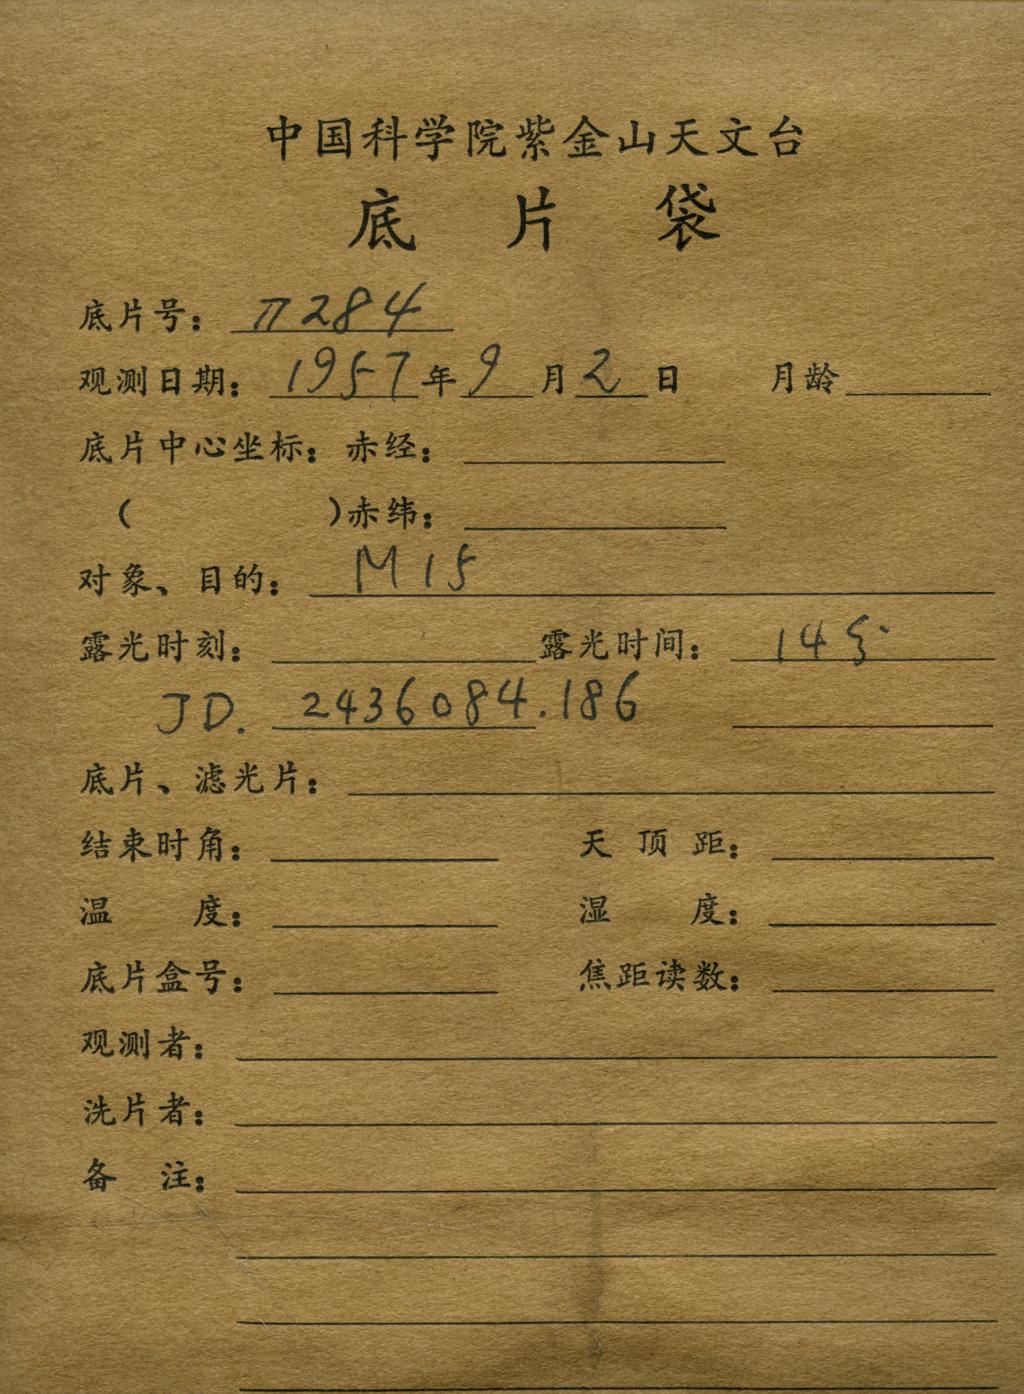 中国科学院紫金山天文台
底片袋
底片号：π284
观测日期：1957年9月2日 月龄
底片中心坐标：赤经：
（ ）赤纬：
对象、目的：M15
露光时刻： 露光时间：14分
JD. 2436084.186
底片、滤光片：
结束时角： 天顶距：
温度： 湿度：
底片盒号： 焦距读数：
观测者：
洗片者：
备注：